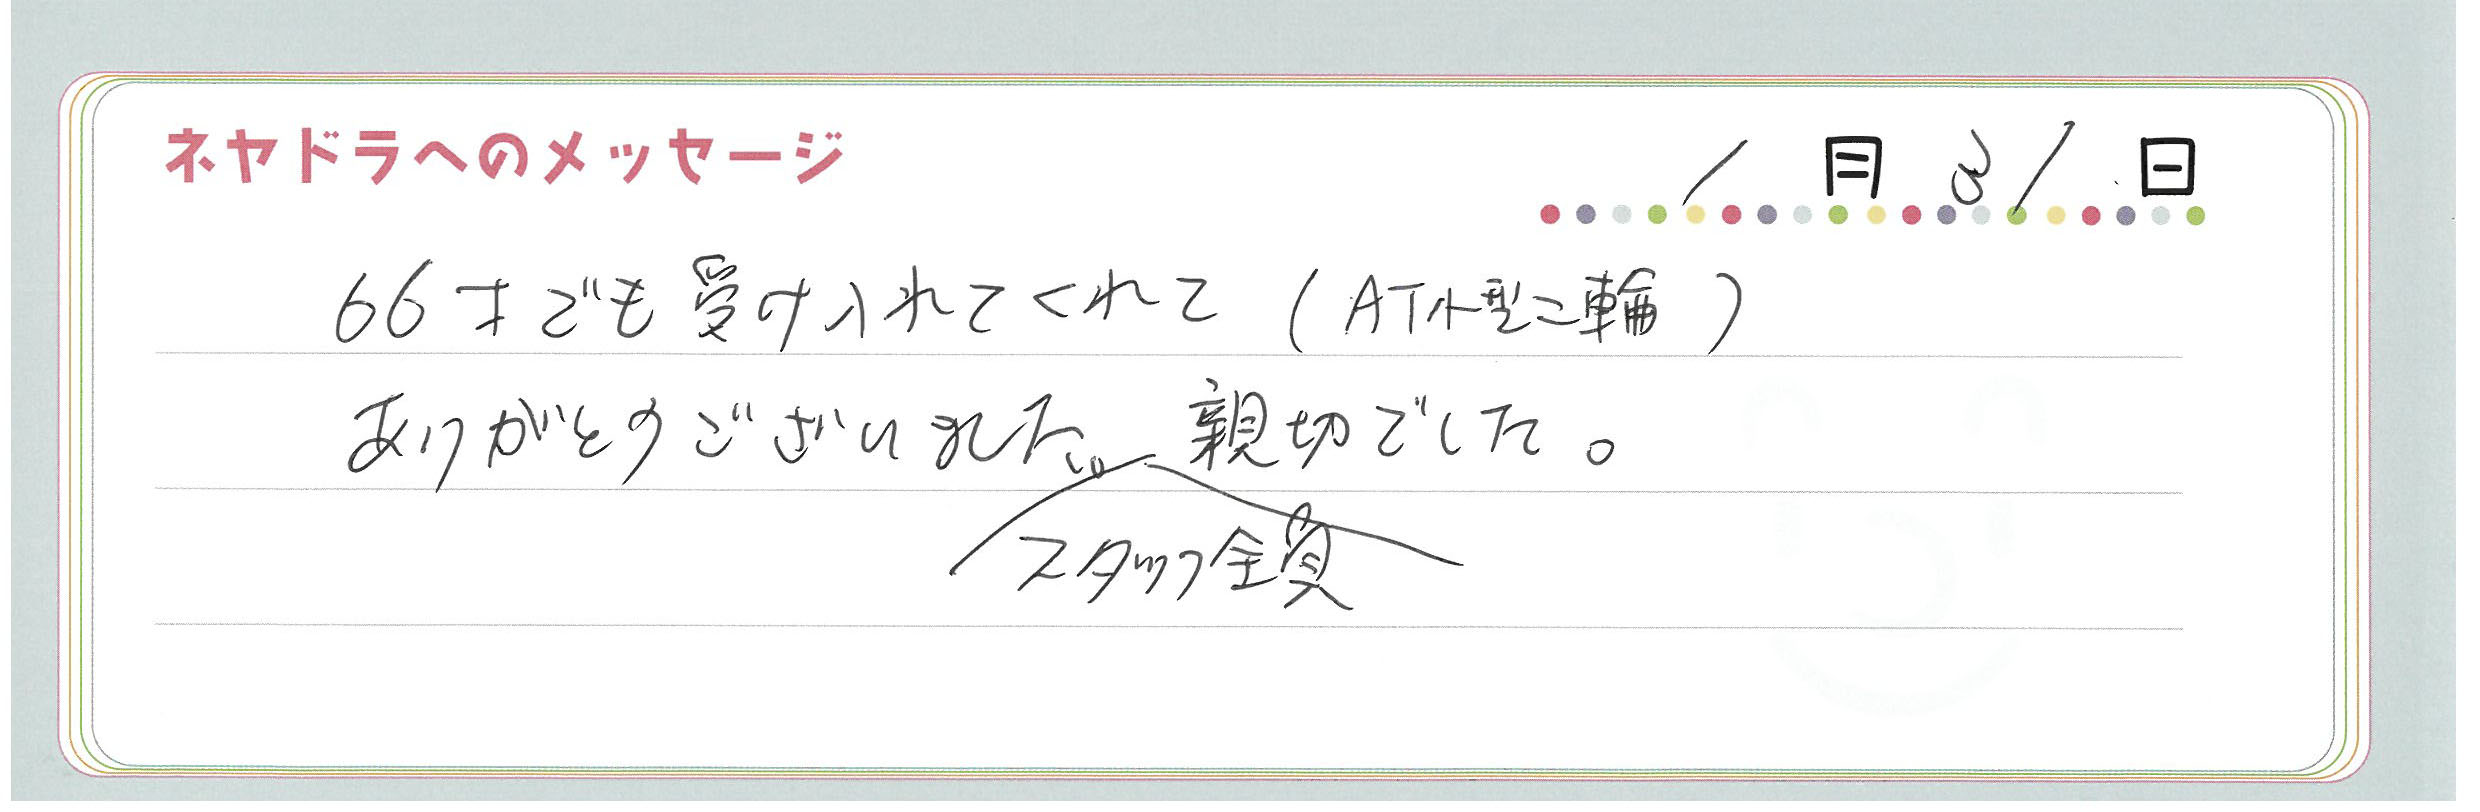 ネヤドラへのメッセージ
1月31日
66才でも受け入れてくれて(AT小型二輪)
ありがとうございました。親切でした。
スタッフ全員